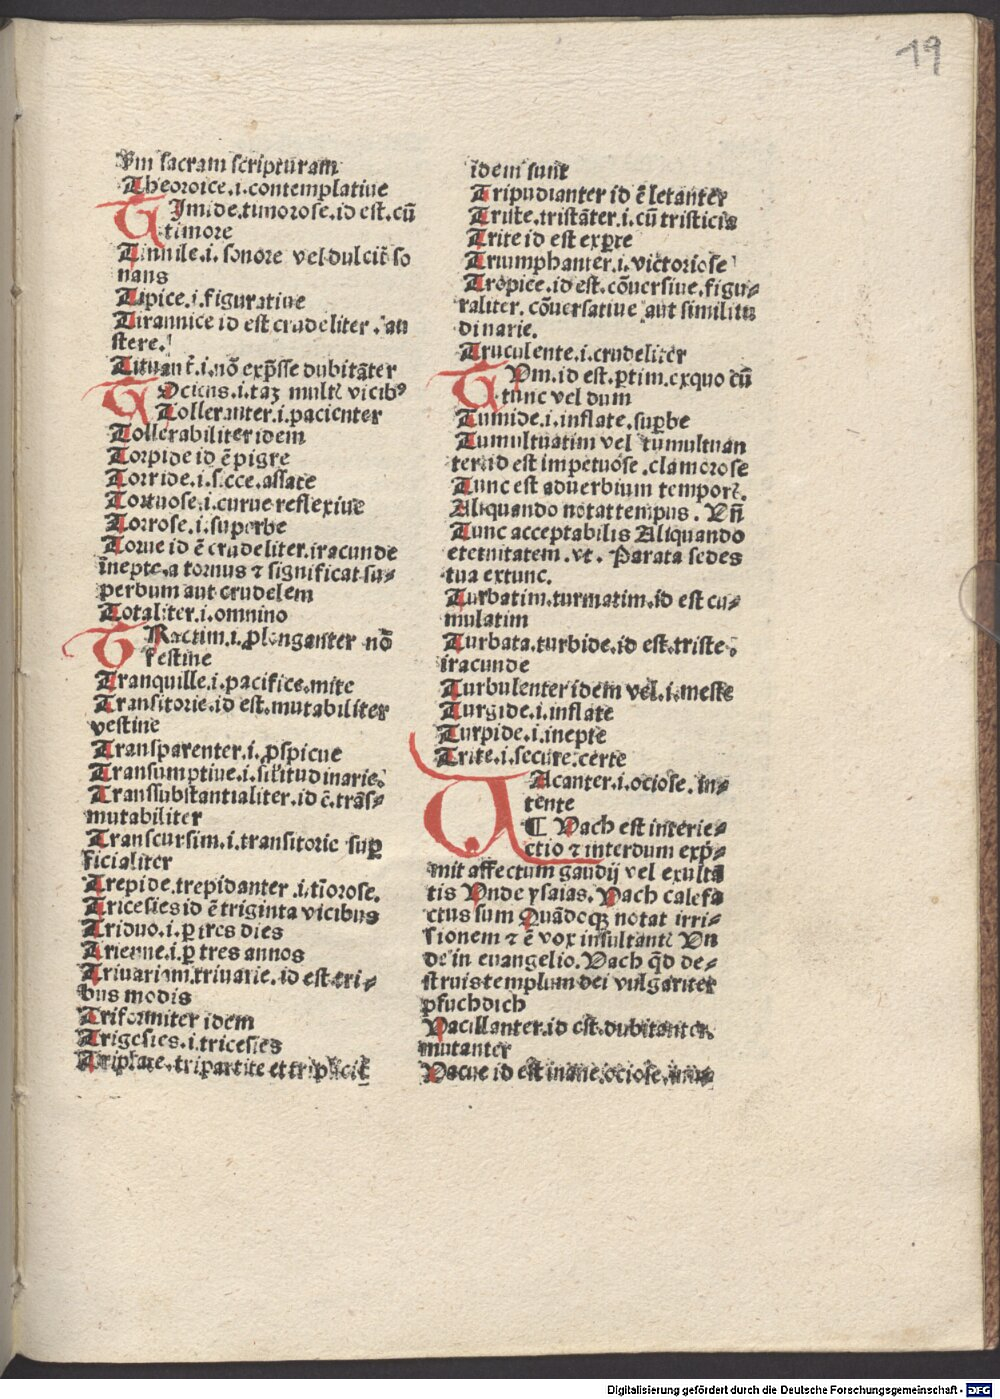 19
s̄m sacram scripturam
Theoroice.i.contemplatiue
TImide.timorose.id est.cū
timore
Tinnile.i.sonore vel dulcit̄ so
nans
Tipice.i.figuratiue
Tirannice id est crudeliter.au
stere.
Tituant̄.i.nō exp̄sse dubitāter
TOciens.i.taꝫ mult̄ vicibꝰ
Tolleranter.i.pacienter
Tollerabiliter idem
Torpide id ē pigre
Torride.i.sicce.assate
Tortuose.i.curue reflexiue
Torrose.i.superbe
Torue id ē crudeliter.iracunde
inepte.a toruus ⁊ significat su-
perbum aut crudelem
Totaliter.i.omnino
TRactim.i.ꝓlonganter nō
festine
Tranquille.i.pacifice.mite
Transitorie.id est.mutabiliter
vestine
Transparenter.i.ꝑspicue
Transumptiue.i.sil'itudinarie.
Transsubstantialiter.id ē.trās-
mutabiliter
Transcursim.i.transitorie suꝑ
ficialiter
Trepide.trepidanter.i.tīorose.
Tricesies id ē triginta vicibus
Triduo.i.ꝑ tres dies
Trienne.i.ꝑ tres annos
Triuariam.triuarie.id est.tri-
bus modis
Triformiter idem
Trigesies.i.tricesies
Triplare.tripartite et triplicit̄
idem sunt
Tripudianter id ē letanter
Triste.tristāter.i.cū tristicia
Trite id est exꝑte
Triumphanter.i.victoriose
Tropice.id est.cōuersiue.figu-
raliter.cōuersatiue aut similitu
dinarie.
Truculente.i.crudeliter
TVm.id est.ꝑtim.ex quo cū
tunc vel dum
Tumide.i.inflate.suꝑbe
Tumultuatim vel tumultuan
ter id est impetuose.clamorose
Tunc est aduerbium tempor̄.
Aliquando notat tempus. Vn̄
Tunc acceptabilis Aliquando
eternitatem.vt. Parata sedes
tua extunc.
Turbatim.turmatim.id est cu-
mulatim
Turbata.turbide.id est.triste.
iracunde
Turbulenter idem vel.i.meste
Turgide.i.inflate
Turpide.i.inepte
Trite.i.secure.certe
VAcanter.i.ociose.in-
tente
¶ Vach est interie-
ctio ⁊ interdum exp̄-
mit affectum gaudij vel exulta
tis Vnde ysaias. Vach calefa
ctus sum Quādoqꝫ notat irri-
sionem ⁊ ē vox insultant̄ Vn
de in euangelio. Vach q̄d de-
struis templum dei vulgariter
pfuchdich
Vacillanter.id est.dubitanter.
mutanter
Vacue id est inane.ociose.
Digitalisierung gefördert durch die Deutsche Forschungsgemeinschaft - DFG